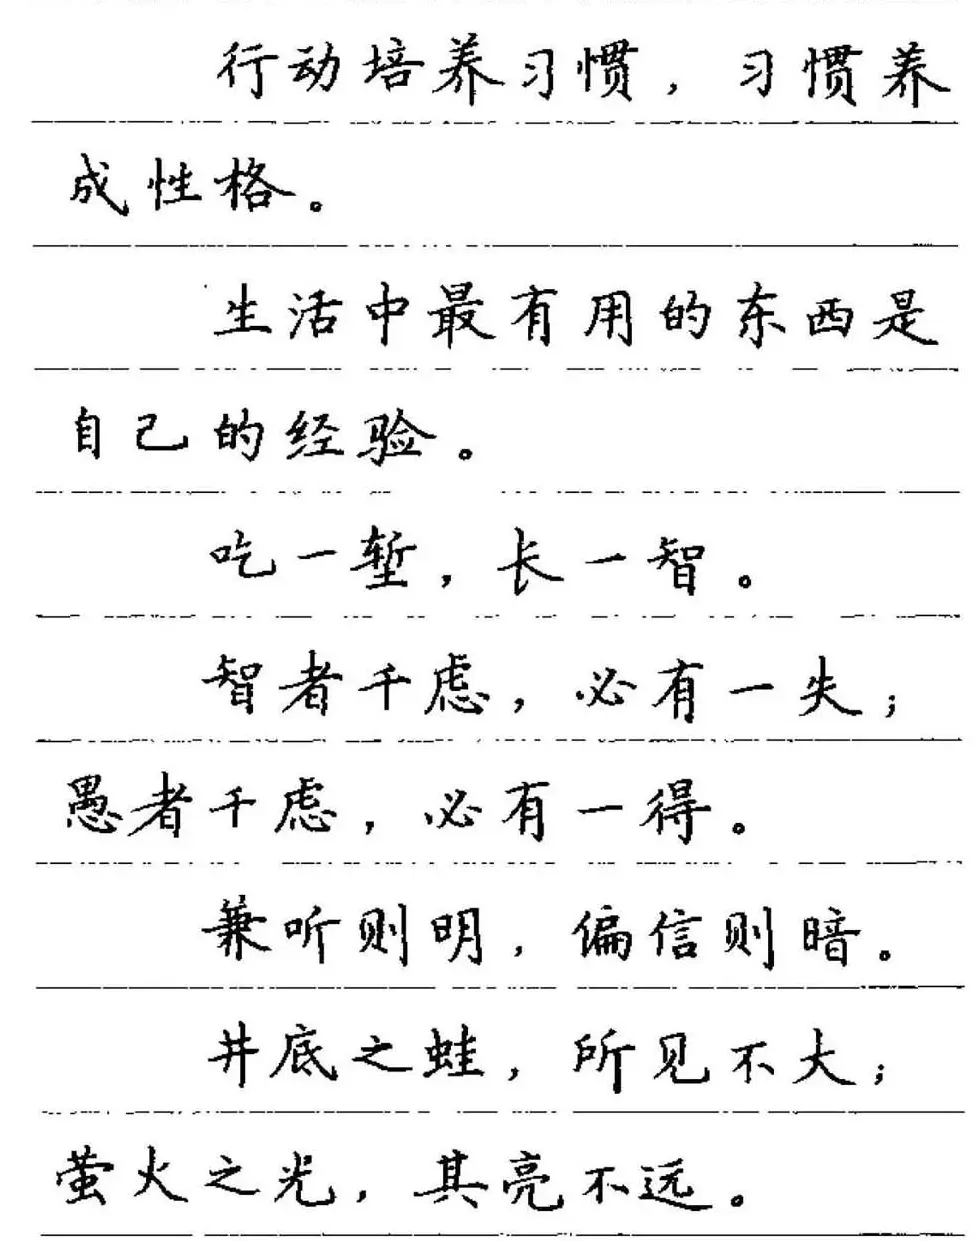 行动培养习惯，习惯养
成性格。
生活中最有用的东西是
自己的经验。
吃一堑，长一智。
智者千虑，必有一失；
愚者千虑，必有一得。
兼听则明，偏信则暗。
井底之蛙，所见不大；
萤火之光，其亮不远。